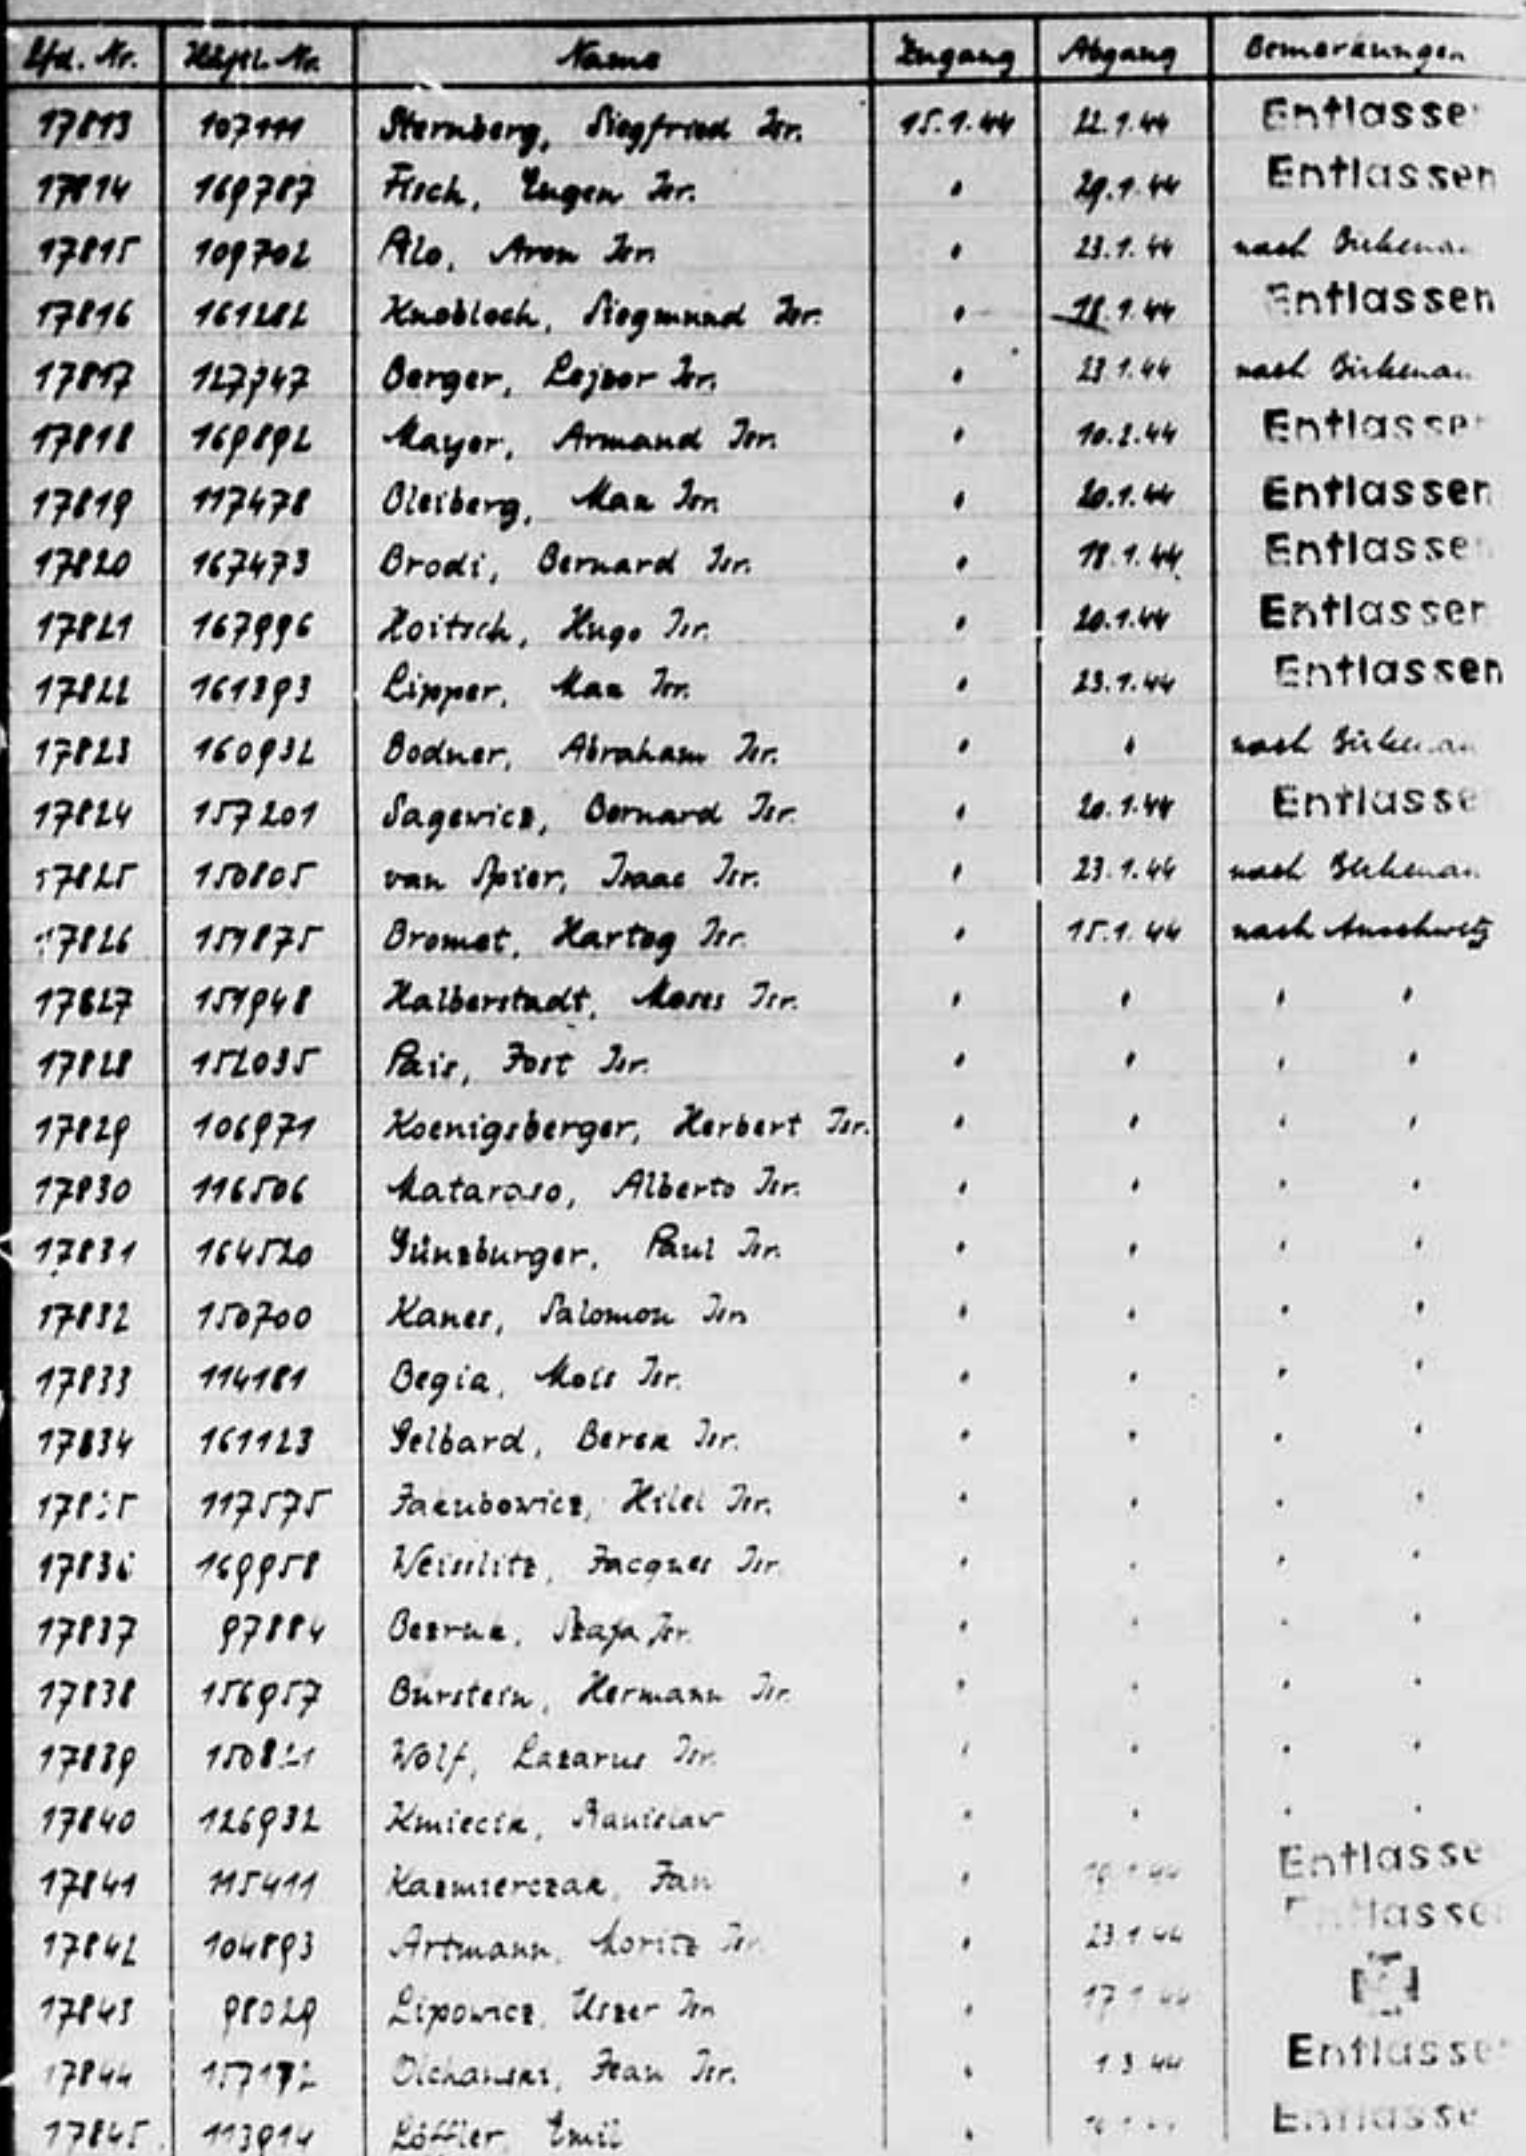 Lfd. Nr. Häftl. Nr. Name Zugang Abgang Bemerkungen
17813 107111 Sternberg, Siegfried Isr. 15.1.44 22.1.44 Entlasse
17814 169787 Fisch, Eugen Isr. " 29.1.44 Entlassen
17815 109702 Pilo, Aron Isr. " 23.1.44 nach Birkenau
17816 161282 Knobloch, Siegmund Isr. " 18.1.44 Entlassen
17817 127947 Berger, Lejzor Isr. " 23.1.44 nach Birkenau
17818 169892 Mayer, Armand Isr. " 10.2.44 Entlassen
17819 117478 Bleiberg, Max Isr. " 20.1.44 Entlassen
17820 167473 Brodi, Bernard Isr. " 18.1.44 Entlassen
17821 167996 Hoitsch, Hugo Isr. " 20.1.44 Entlassen
17822 161393 Lipper, Max Isr. " 23.1.44 Entlassen
17823 160932 Bodner, Abraham Isr. " " nach Birkenau
17824 157201 Sagewicz, Bernard Isr. " 20.1.44 Entlasse
17825 150805 van Spier, Isaac Isr. " 23.1.44 nach Birkenau
17826 151875 Bromet, Hartog Isr. " 15.1.44 nach Auschwitz
17827 151948 Halberstadt, Moses Isr. " " " "
17828 152035 Pais, Jost Isr. " " " "
17829 106971 Koenigsberger, Herbert Isr. " " " "
17830 116506 Mataraso, Alberto Isr. " " " "
17831 164520 Günzburger, Paul Isr. " " " "
17832 150700 Kanes, Salomon Isr. " " " "
17833 114181 Begia, Mois Isr. " " " "
17834 161123 Gelbard, Berek Isr. " " " "
117575 Jakubowicz, Hilel Isr. " " " "
17836 169958 Weisslitz, Jacques Isr. " " " "
17837 97884 Bezruk, Szaja Isr. " " " "
17838 156957 Burstein, Hermann Isr. " " " "
17839 Wolf, Lazarus Isr. " " " "
17840 126932 Kmiecik, Stanislaw " " " "
17841 115411 Kazmierczak, Jan " Entlasse
17842 104893 Artmann, Moritz Isr. " 23.1.44
17843 98029 Lipowicz, Uszer Isr. " 17.1.44
17844 Olchanski, Jean Isr. " 1.3.44 Entlasse
17845 113914 Löffler Emil " Entlasse